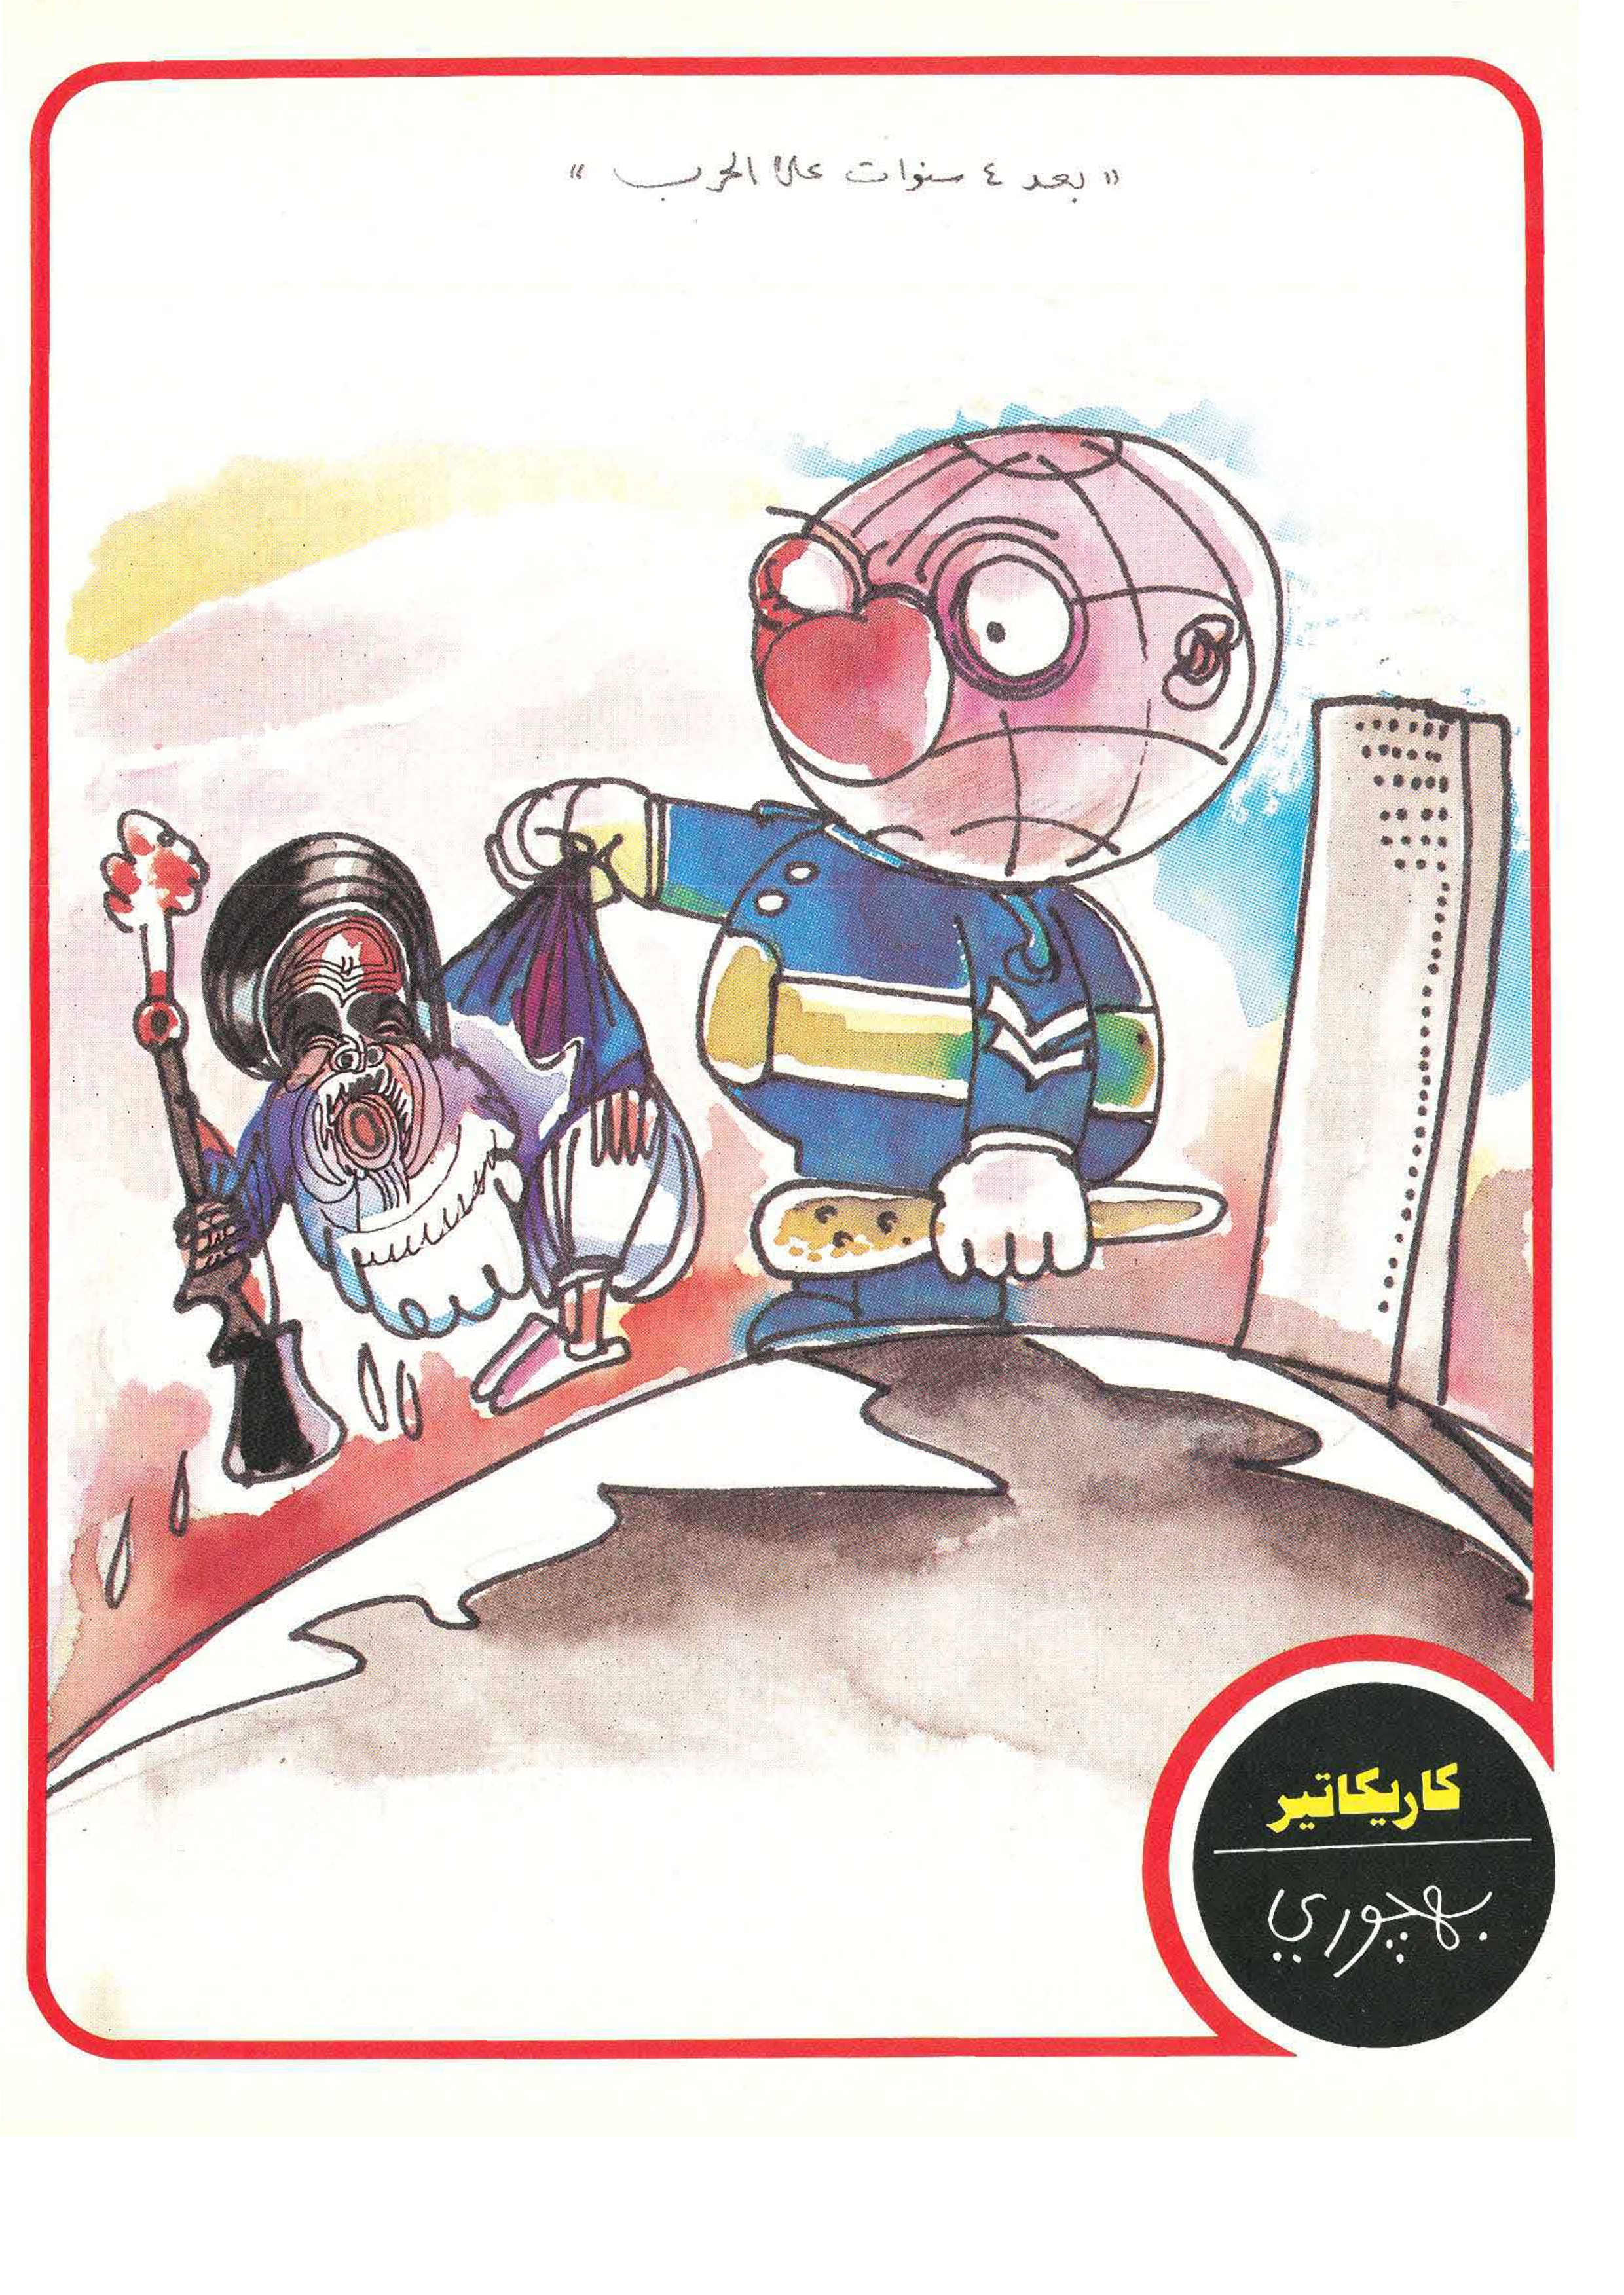 « بعد ٤ سنوات على الحرب »
كاريكاتير
بهجوري